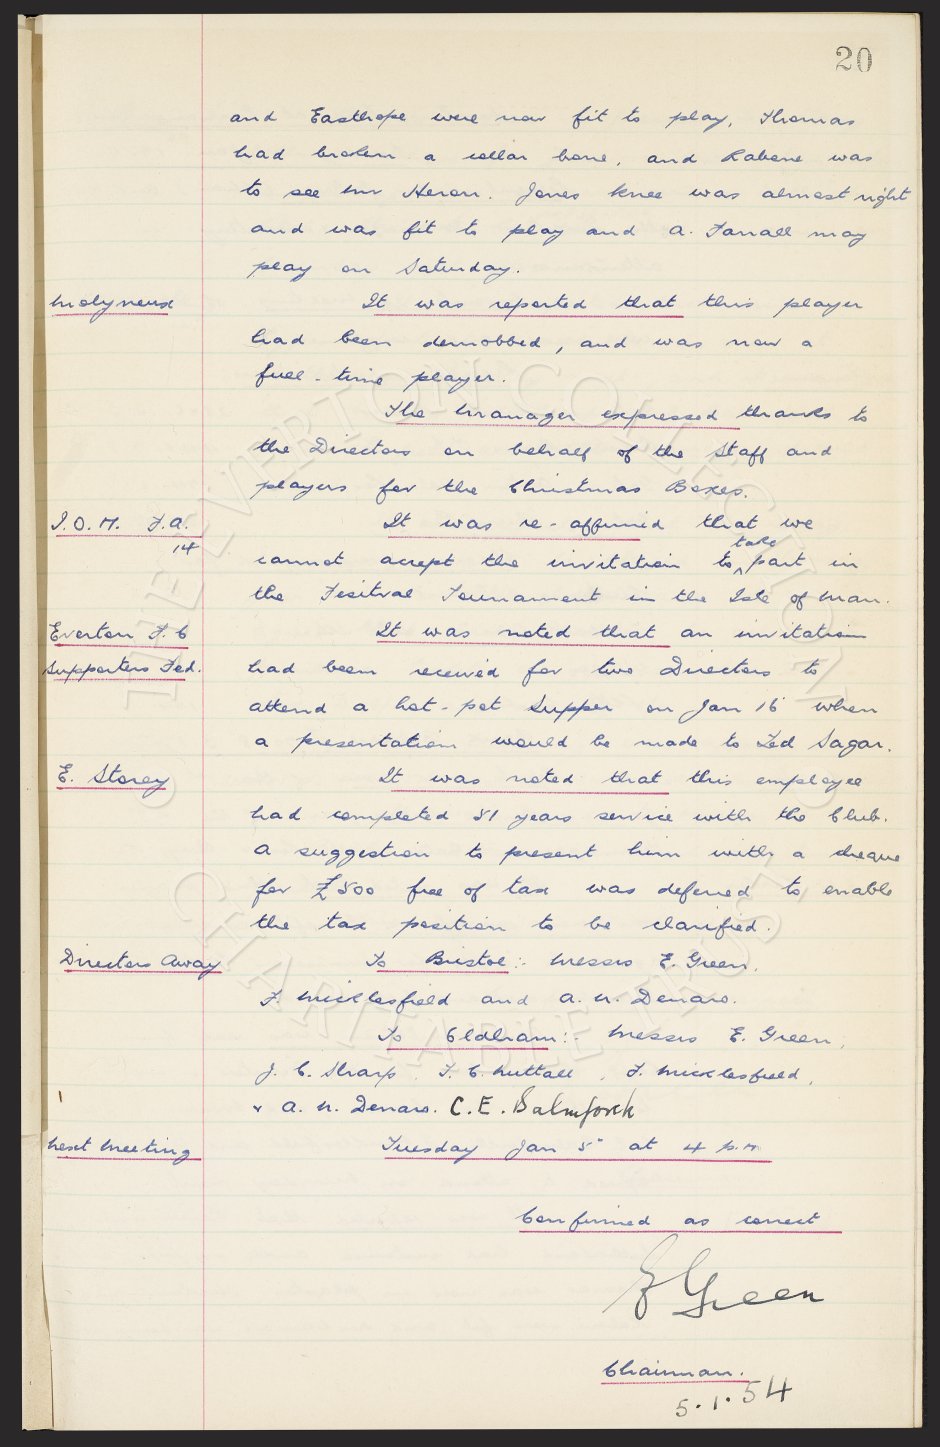 20
and Easthope were now fit to play, Thomas
had broken a collar bone, and Rabone was
to see Mr Heron. Jones knee was almost right
and was fit to play and A. Farrall may
play on Saturday.
Molyneux It was reported that this player
had been demobbed, and was now a
full-time player.
The Manager expressed thanks to
the Directors on behalf of the Staff and
players for the Christmas Boxes.
I.O.M. F.A. It was re-affirmed that we
14
take
cannot accept the invitation to ^ part in
the Fesitval Tournament in the Isle of Man.
Everton F.C It was noted that an invitation
Supporters Fed. had been received for two Directors to
attend a hot-pot Supper on Jan 16 when
a presentation would be made to Ted Sagar.
E. Storey It was noted that this employee
had completed 51 years service with the Club.
A suggestion to present him with a cheque
for £500 free of tax was deferred to enable
the tax position to be clarified.
Directors Away To Bristol:- Messrs E. Green,
F. Micklesfield and A. N. Denaro.
To Oldham:- Messrs E. Green,
J. C. Sharp, T. C. Nuttall, F. Micklesfield,
& A. N. Denaro. C. E. Balmforth
Next Meeting Tuesday Jan 5" at 4 p.m
Confirmed as correct
E Green
Chairman.
5.1.54
THE EVERTON COLLECTION
CHARITABLE TRUST